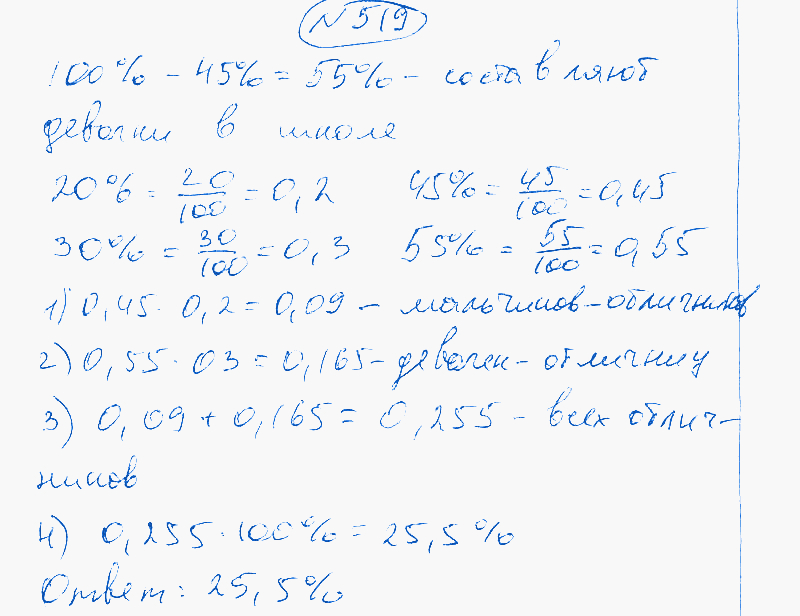 №519
100% - 45% = 55% - составляют
девочки в школе
20% = 20/100 = 0,2 45% = 45/100 = 0,45
30% = 30/100 = 0,3 55% = 55/100 = 0,55
1) 0,45 · 0,2 = 0,09 - мальчиков-отличников
2) 0,55 · 03 = 0,165 - девочек-отличниц
3) 0,09 + 0,165 = 0,255 - всех отлич-
ников
4) 0,255 · 100% = 25,5%
Ответ: 25,5%